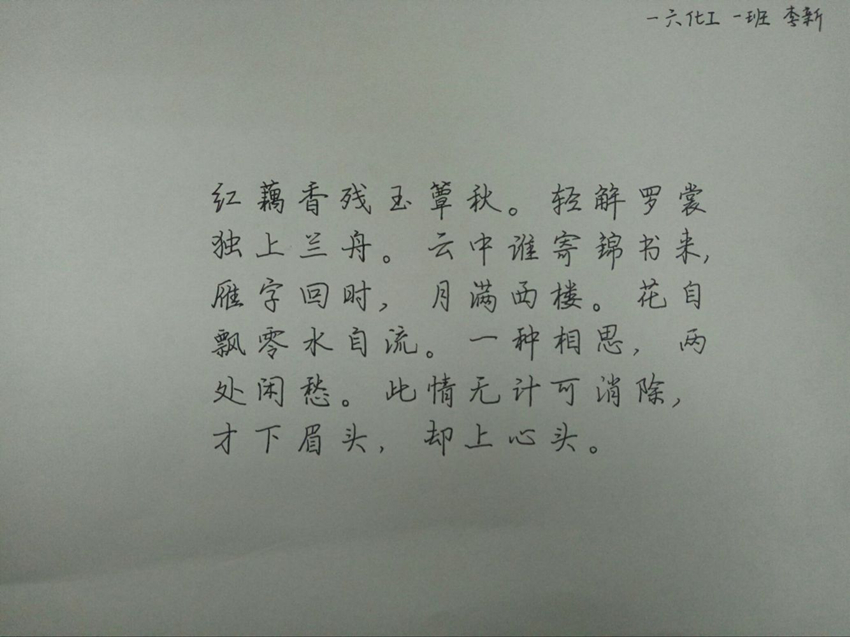 一六化工 一班 李新
红藕香残玉蕈秋。轻解罗裳
独上兰舟。云中谁寄锦书来,
雁字回时,月满西楼。花自
飘零水自流。一种相思,两
处闲愁。此情无计可消除,
才下眉头,却上心头。